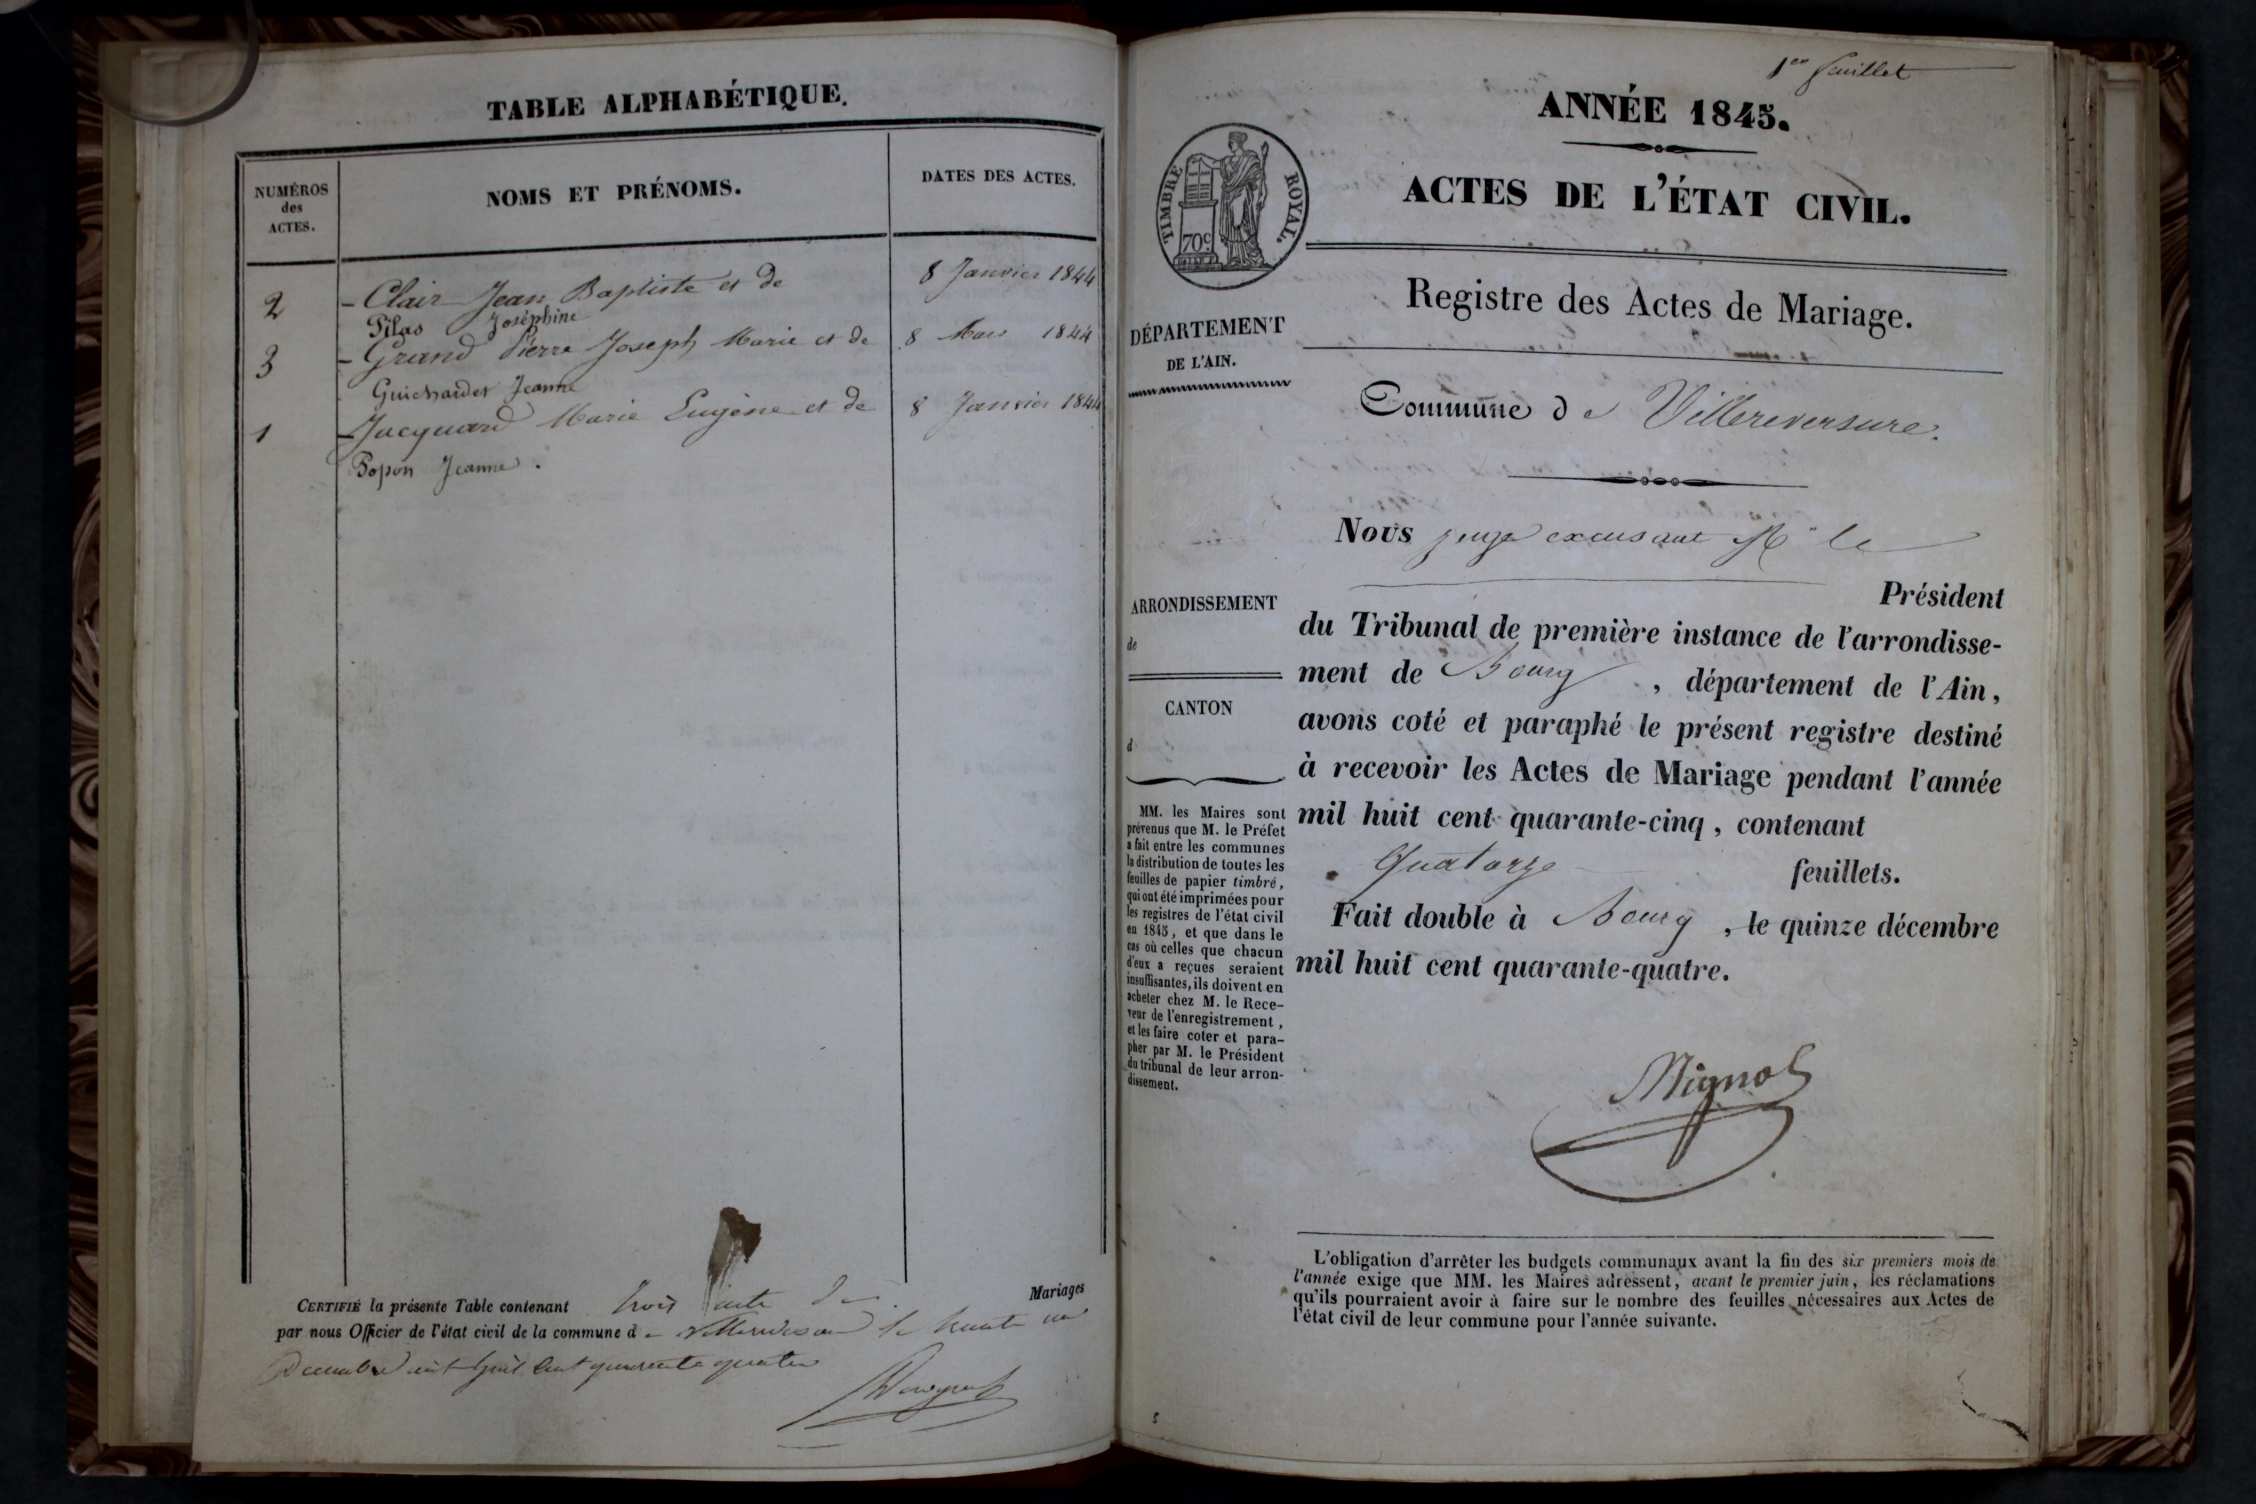 TABLE ALPHABÉTIQUE.
NUMÉROS
des
ACTES.
NOMS ET PRÉNOMS.
DATES DES ACTES.
2 – Clair Jean Baptiste et de 8 Janvier 1844
Pilas Joséphine
3 – Grand Pierre Joseph Marie et de 8 Mars 1844
Guichardet Jeanne
1 – Jacquand Marie Eugène et de 8 Janvier 1844
Popon Jeanne.
CERTIFIÉ la présente Table contenant trois acte de Mariages
par nous Officier de l'état civil de la commune de Villereversure le trente un
Decembre mil huit cent quarante quatre
1er feuillet
ANNÉE 1845.
ACTES DE L'ÉTAT CIVIL.
TIMBRE ROYAL.
70c
Registre des Actes de Mariage.
DÉPARTEMENT
DE L'AIN.
Commune de Villereversure.
Nous juge excusant Mr le
Président
du Tribunal de première instance de l'arrondisse-
ment de Bourg, département de l'Ain,
avons coté et paraphé le présent registre destiné
à recevoir les Actes de Mariage pendant l'année
mil huit cent quarante-cinq, contenant
Quatorze feuillets.
Fait double à Bourg, le quinze décembre
mil huit cent quarante-quatre.
Mignot
ARRONDISSEMENT
de
CANTON
d
MM. les Maires sont
prévenus que M. le Préfet
a fait entre les communes
la distribution de toutes les
feuilles de papier timbré,
qui ont été imprimées pour
les registres de l'état civil
en 1845, et que dans le
cas où celles que chacun
d'eux a reçues seraient
insuffisantes, ils doivent en
acheter chez M. le Rece-
veur de l'enregistrement,
et les faire coter et para-
pher par M. le Président
du tribunal de leur arron-
dissement.
L'obligation d'arrêter les budgets communaux avant la fin des six premiers mois de
l'année exige que MM. les Maires adressent, avant le premier juin, les réclamations
qu'ils pourraient avoir à faire sur le nombre des feuilles nécessaires aux Actes de
l'état civil de leur commune pour l'année suivante.